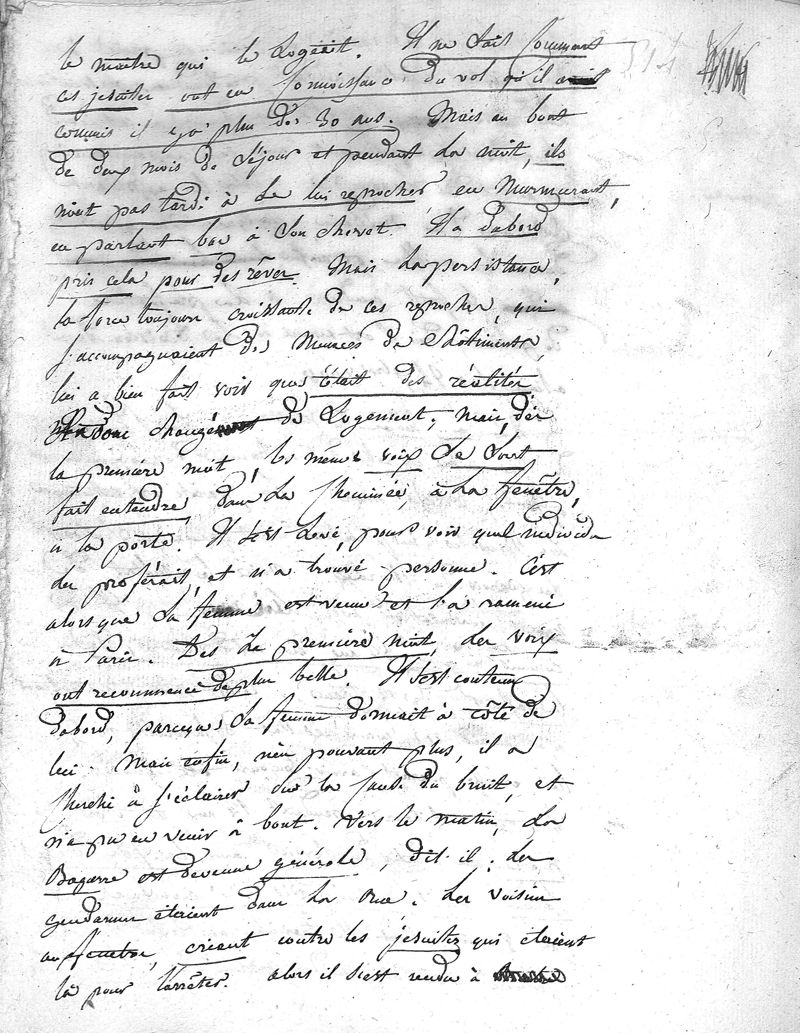 le maitre qui le Logeait. Il ne sait Comment
ces jesuites ont eu Connoissance du vol qu'il avait
commis il y a plus de 30 ans. Mais au bout
de deux mois de Séjour et pendant La nuit, ils
n'ont pas tardé à Le lui reprocher en Murmurant,
en parlant bas à Son chevet. Il a d'abord
pris cela pour des rêves. Mais La persistance,
la force toujours croissante de ces reproches, qui
s'accompagnaient de Menaces de Châtiments,
lui a bien fait voir que c'était des réalités.
Il a donc changé de Logement, mais, dès
la première nuit, les mêmes voix Se Sont
fait entendre, dans La Cheminée, à La fenêtre,
à la porte. Il s'est Levé, pour voir quel individu
les proférait, et n'a trouvé personne. C'est
alors que Sa femme est venue et l'a ramené
à Paris. Dès La première nuit, Les voix
ont recommencé de plus belle. Il s'est contenu
d'abord, parceque Sa femme dormait à côté de
lui. Mais enfin, n'en pouvant plus, il a
Cherché à S'éclairer sur la cause du bruit, et
n'a pu en venir à bout. Vers le matin, La
Bagarre est devenue générale, dit-il. Les
gendarmes étaient dans La Rue. Les voisins
aux fenêtres, criaient contre les jesuites qui étaient
là pour L'arrêter. Alors il s'est rendu à